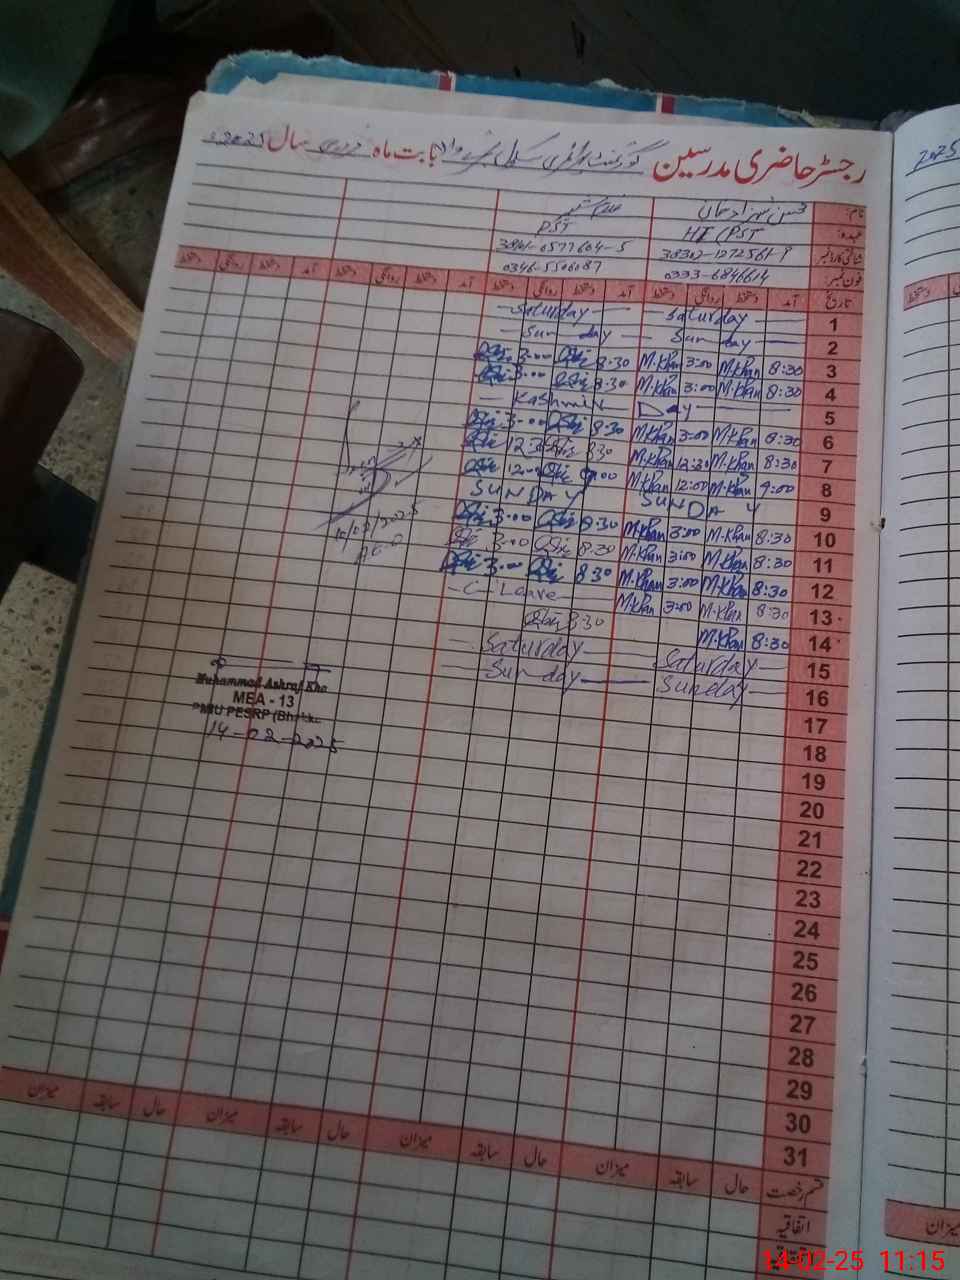 رجسٹر حاضری مدرسین گورنمنٹ پرائمری سکول بابت ماہ فروری سال 2025
2025
نام:
عہدہ: HT (PST PST
شناختی کارڈ نمبر 38302-1272561-9 0577604-5
فون نمبر: 0333-6846614 0346-5506087
تاریخ آمد دستخط روانگی دستخط آمد دستخط روانگی دستخط آمد دستخط روانگی دستخط آمد دستخط روانگی دستخط
1 Saturday Saturday
2 Sunday Sunday
3 8:30 M.Khan 3:00 M.Khan 8:30 3:00
4 8:30 M.Khan 3:00 M.Khan 8:30 3:00
5 Kashmir Day
6 8:30 M.Khan 3:00 M.Khan 8:30 3:00
7 8:30 M.Khan 12:30 M.Khan 8:30 12:30
8 9:00 M.Khan 12:00 M.Khan 9:00 12:00
9 SUNDAY SUNDAY
10 8:30 M.Khan 3:00 M.Khan 8:30 3:00
11 8:30 M.Khan 3:00 M.Khan 8:30 3:00
12 8:30 M.Khan 3:00 M.Khan 8:30 3:00
13 8:30 M.Khan 3:00 M.Khan C. Leave
14 8:30 M.Khan 8:30
15 Saturday Saturday
16 Sunday Sunday
17
18
19
20
21
22
23
24
25
26
27
28
29
30
31
10/02/2025
AEO
Muhammad Ashraf Kha
MEA - 13
PMIU PESRP (Bhakk
14-02-2025
قسم رخصت حال سابقہ میزان حال سابقہ میزان حال سابقہ میزان حال سابقہ میزان
اتفاقیہ
میزان
14-02-25 11:15